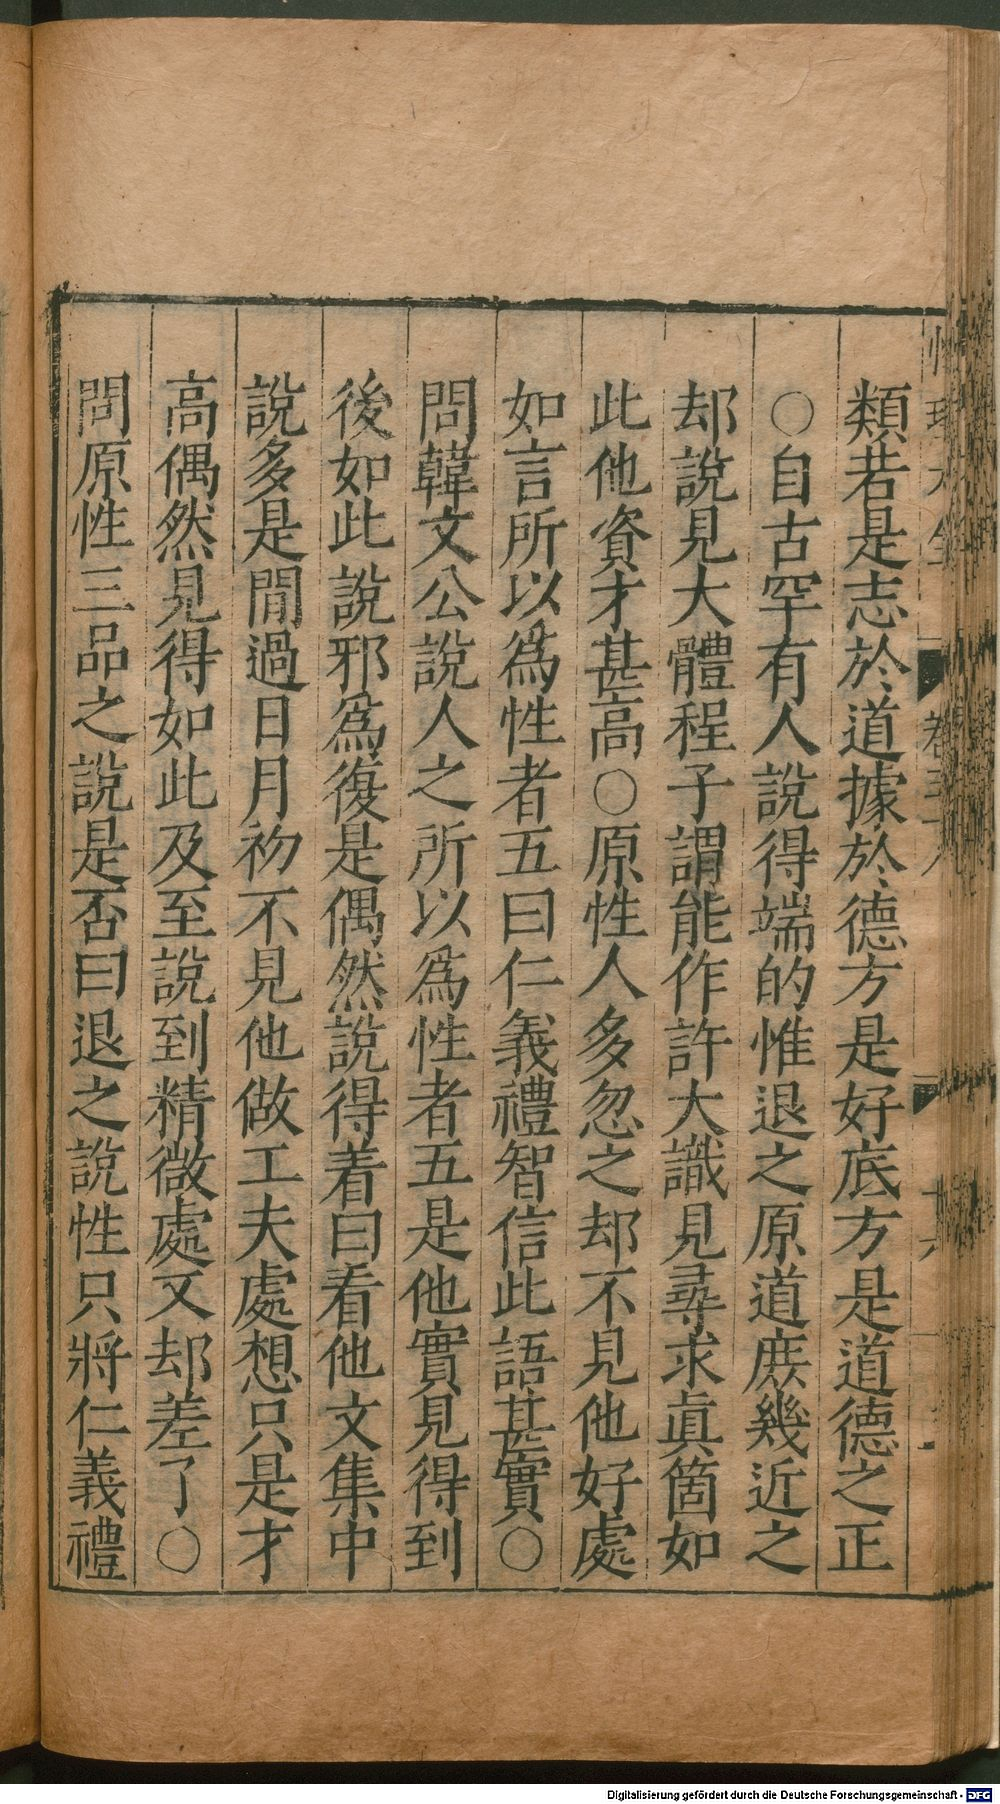 類若是志於道據於德方是好底方是道德之正
○自古罕有人說得端的惟退之原道庶幾近之
却說見大體程子謂能作許大識見尋求眞箇如
此他資才甚高○原性人多忽之却不見他好處
如言所以爲性者五曰仁義禮智信此語甚實○
問韓文公說人之所以爲性者五是他實見得到
後如此說邪爲復是偶然說得着曰看他文集中
說多是閒過日月初不見他做工夫處想只是才
高偶然見得如此及至說到精微處又却差了○
問原性三品之說是否曰退之說性只將仁義禮
Digitalisierung gefördert durch die Deutsche Forschungsgemeinschaft - DFG